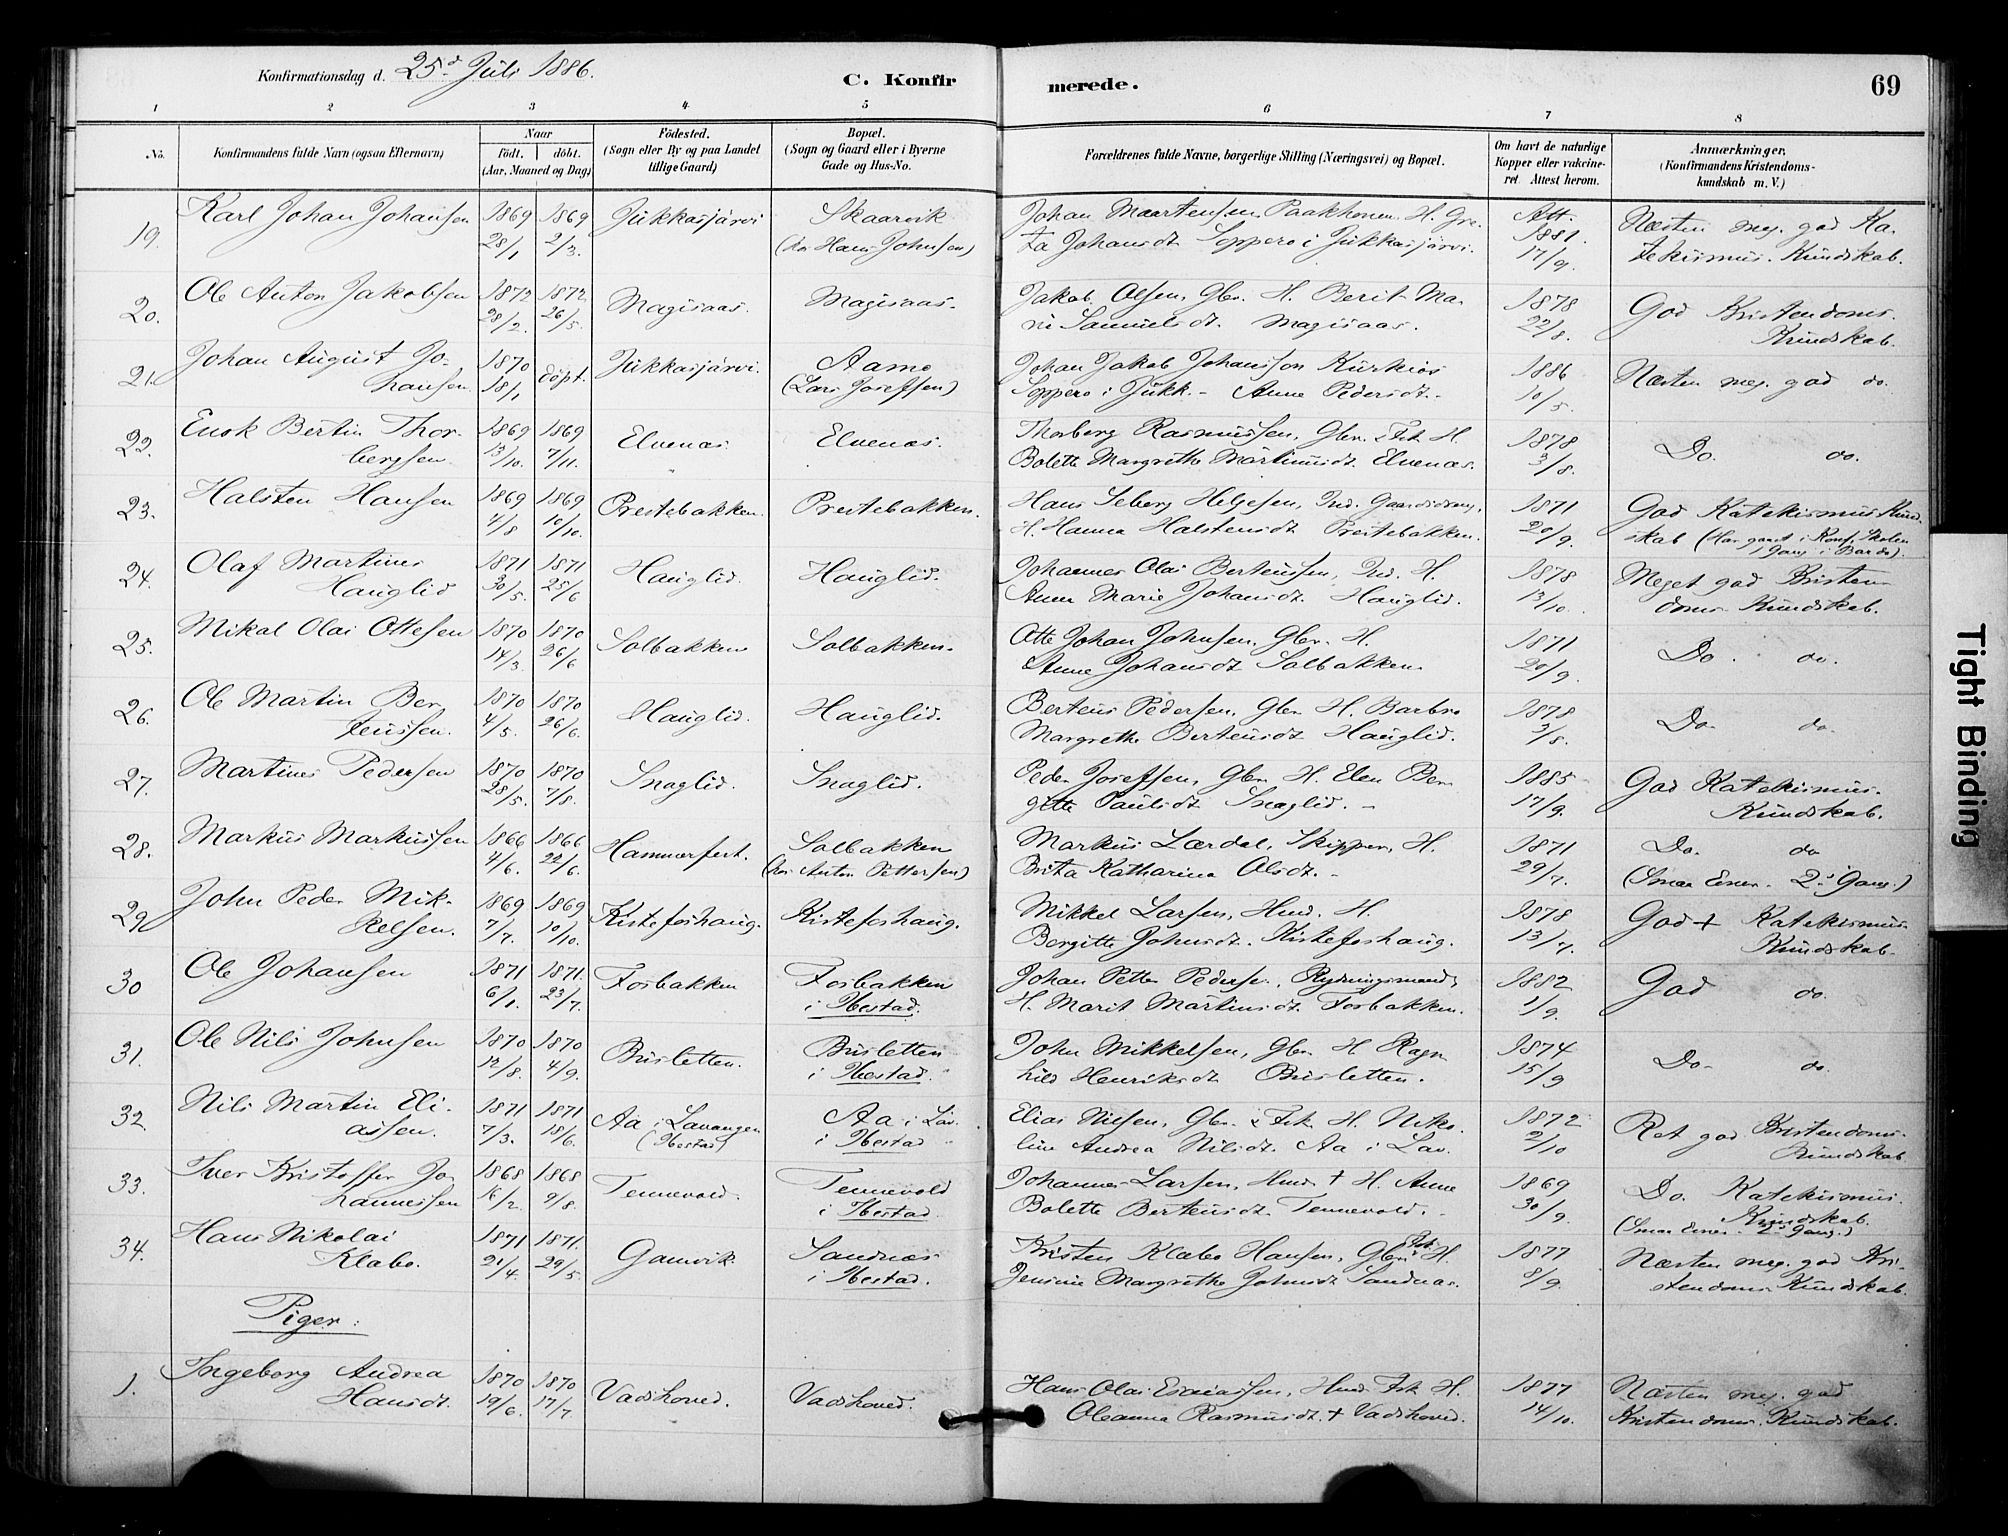 Konfirmationsdag d. 25d Juli 1886.
C. Konfirmerede.
69
1 2 3 4 5 6 7 8
No.
Konfirmandens fulde Navn (ogsaa Efternavn)
Naar
födt. döbt.
(Aar, Maaned og Dag)
Födested.
(Sogn eller By og paa Landet
tillige Gaard)
Bopæl.
(Sogn og Gaard eller i Byerne
Gade og Hus-No.
Forældrenes fulde Navne, borgerlige Stilling (Næringsvei) og Bopæl.
Om havt de naturlige
Kopper eller vakcine-
ret. Attest herom.
Anmærkninger,
(Konfirmandens Kristendoms-
kundskab m. V.)
19. Karl Johan Johansen 1869 28/1 1869 2/3. Jukkasjärvi Skaarvik (hos Hans Johnsen) Johan Maartensen Paakkonen H. Gre- ta Johansdt. Soppero i Jukkasjärvi. Att. 1881. 17/9. Næsten meg. god Ka- tekismus. Kundskab.
20. Ole Anton Jakobsen 1872 28/2. 1872 26/5. Magisaas. Magisaas. Jakob Olsen, Gbr. H. Berit Ma- ri Samuelsdt. Magisaas. 1878 22/8. God Kristendoms. Kundskab.
21. Johan August Jo- hansen 1870 18/1 döpt. Jukkasjärvi. (Lars Joseffsen) Johan Jakob Johansson Kurkios Soppero i Jukk. - Anne Pedersdt. - 1886 10/5. Næsten meg. god do.
22. Enok Bertin Thor- bergsen. 1869 13/10. 1869 7/11. Elvenæs. Elvenæs. Thorberg Rasmussen, Gbr. & Fisk. H. Bolette Margrethe Martinusdt. Elvenæs. 1878 3/8. Do. do.
23. Halsten Hansen 1869 4/8 1869 10/10. Prestebakken. Prestebakken. Hans Seberg Helgesen, Ind. H. Hanna Halstensdt. Prestebakken. 1871 20/9. God Katekismus Kund- skab (Har gaaet i Konf. Skolen 1 Gang i Bardo).
24. Olaf Martinus Hauglid 1871 30/5. 1871 25/6 Hauglid. Hauglid. Johannes Olai Berteussen, Ind. H. Anne Marie Johansdt. Hauglid. 1878 13/10. Meget god Kristen- doms Kundskab.
25. Mikal Olai Ottesen 1870 14/3. 1870 26/6 Solbakken Solbakken. Otte Johan Johnsen, Gbr. H. Anne Johansdt. Solbakken. 1871 20/9. Do. do.
26. Ole Martin Ber- teussen. 1870 4/5. 1870 26/6. Hauglid. Hauglid. Berteus Pedersen, Gbr. H. Barbro Margrethe Berteusdt. Hauglid. 1878 3/8. Do. do.
27. Martines Pedersen 1870 28/5. 1870 7/8. Snaglid. Snaglid. Peder Joseffsen, Gbr. H. Elen Ber- gitte Paulsdt. Snaglid. - 1885 17/9. God Katekismus. Kundskab.
28. Markus Markussen 1866 4/6. 1866 22/6. Hammerfest. Solbakken (hos Anton Pettersen) Markus Lærdal, Skipper, H. Brita Katharina Olsdt. - 1871 29/7. Do. do (Smaa Evner. 2d Gang.)
29 John Peder Mik- kelsen. 1869 7/7. 1869 10/10. Kistefoshaug. Kistefoshaug. Mikkel Larsen, Hmd. H. Bergitte Johnsdt. Kistefoshaug. 1878 13/7. God + Katekismus Kundskab.
30 Ole Johansen 1871 6/1. 1871. 23/7. Fosbakken Fosbakken i Ibestad. Johan Petter Pedersen, Rydningsmand, H. Marit Martinusdt. Fosbakken. 1882 1/9. God do.
31. Ole Nils Johnsen 1870 12/8. 1870 4/9. Brusletten. Brusletten i Ibestad. John Mikkelsen, Gbr. H. Ragn- hild Henriksdt. Brusletten. 1874 15/9 Do. do.
32. Nils Martin Eli- assen. 1871 7/3. 1871 18/6. Aa i Lavangen (Ibestad) Aa i Lav. i Ibestad Elias Nilsen, Gbr. & Fisk. H. Niko- line Andrea Nilsdt. Aa i Lav. 1872 2/10 Ret god Kristendoms- Kundskab
33. Iver Kristoffer Jo- hannessen 1868 16/2. 1868 9/8. Tennevold. Tennevold i Ibestad. Johannes Larsen, Hmd. + H. Anne Bolette Berteusdt. Tennevold. 1869 30/9. Do. Katekismus. Kundskab. (Smaa Evner. 2d Gang.)
34. Hans Nikolai Klabo. 1871 21/4. 1871. 29/5. Gamvik. Sandnæs i Ibestad. Kristen Klabo Hansen, Gbr. & Fisk. H. Jensine Margrethe Johnsdt. Sandnæs. 1877 8/9. Næsten meg. god Kri- stendoms Kundskab.
Piger:
1. Ingeborg Andrea Hansdt. 1870 19/6. 1870 17/7. Vadshoved. Vadshoved. Hans Olai Esaiassen, Hmd. Fisk. H. Oleanna Rasmusdt. + Vadshoved. 1877 14/10. Næsten meg. god Kristendoms. Kundskab.
Tight Binding